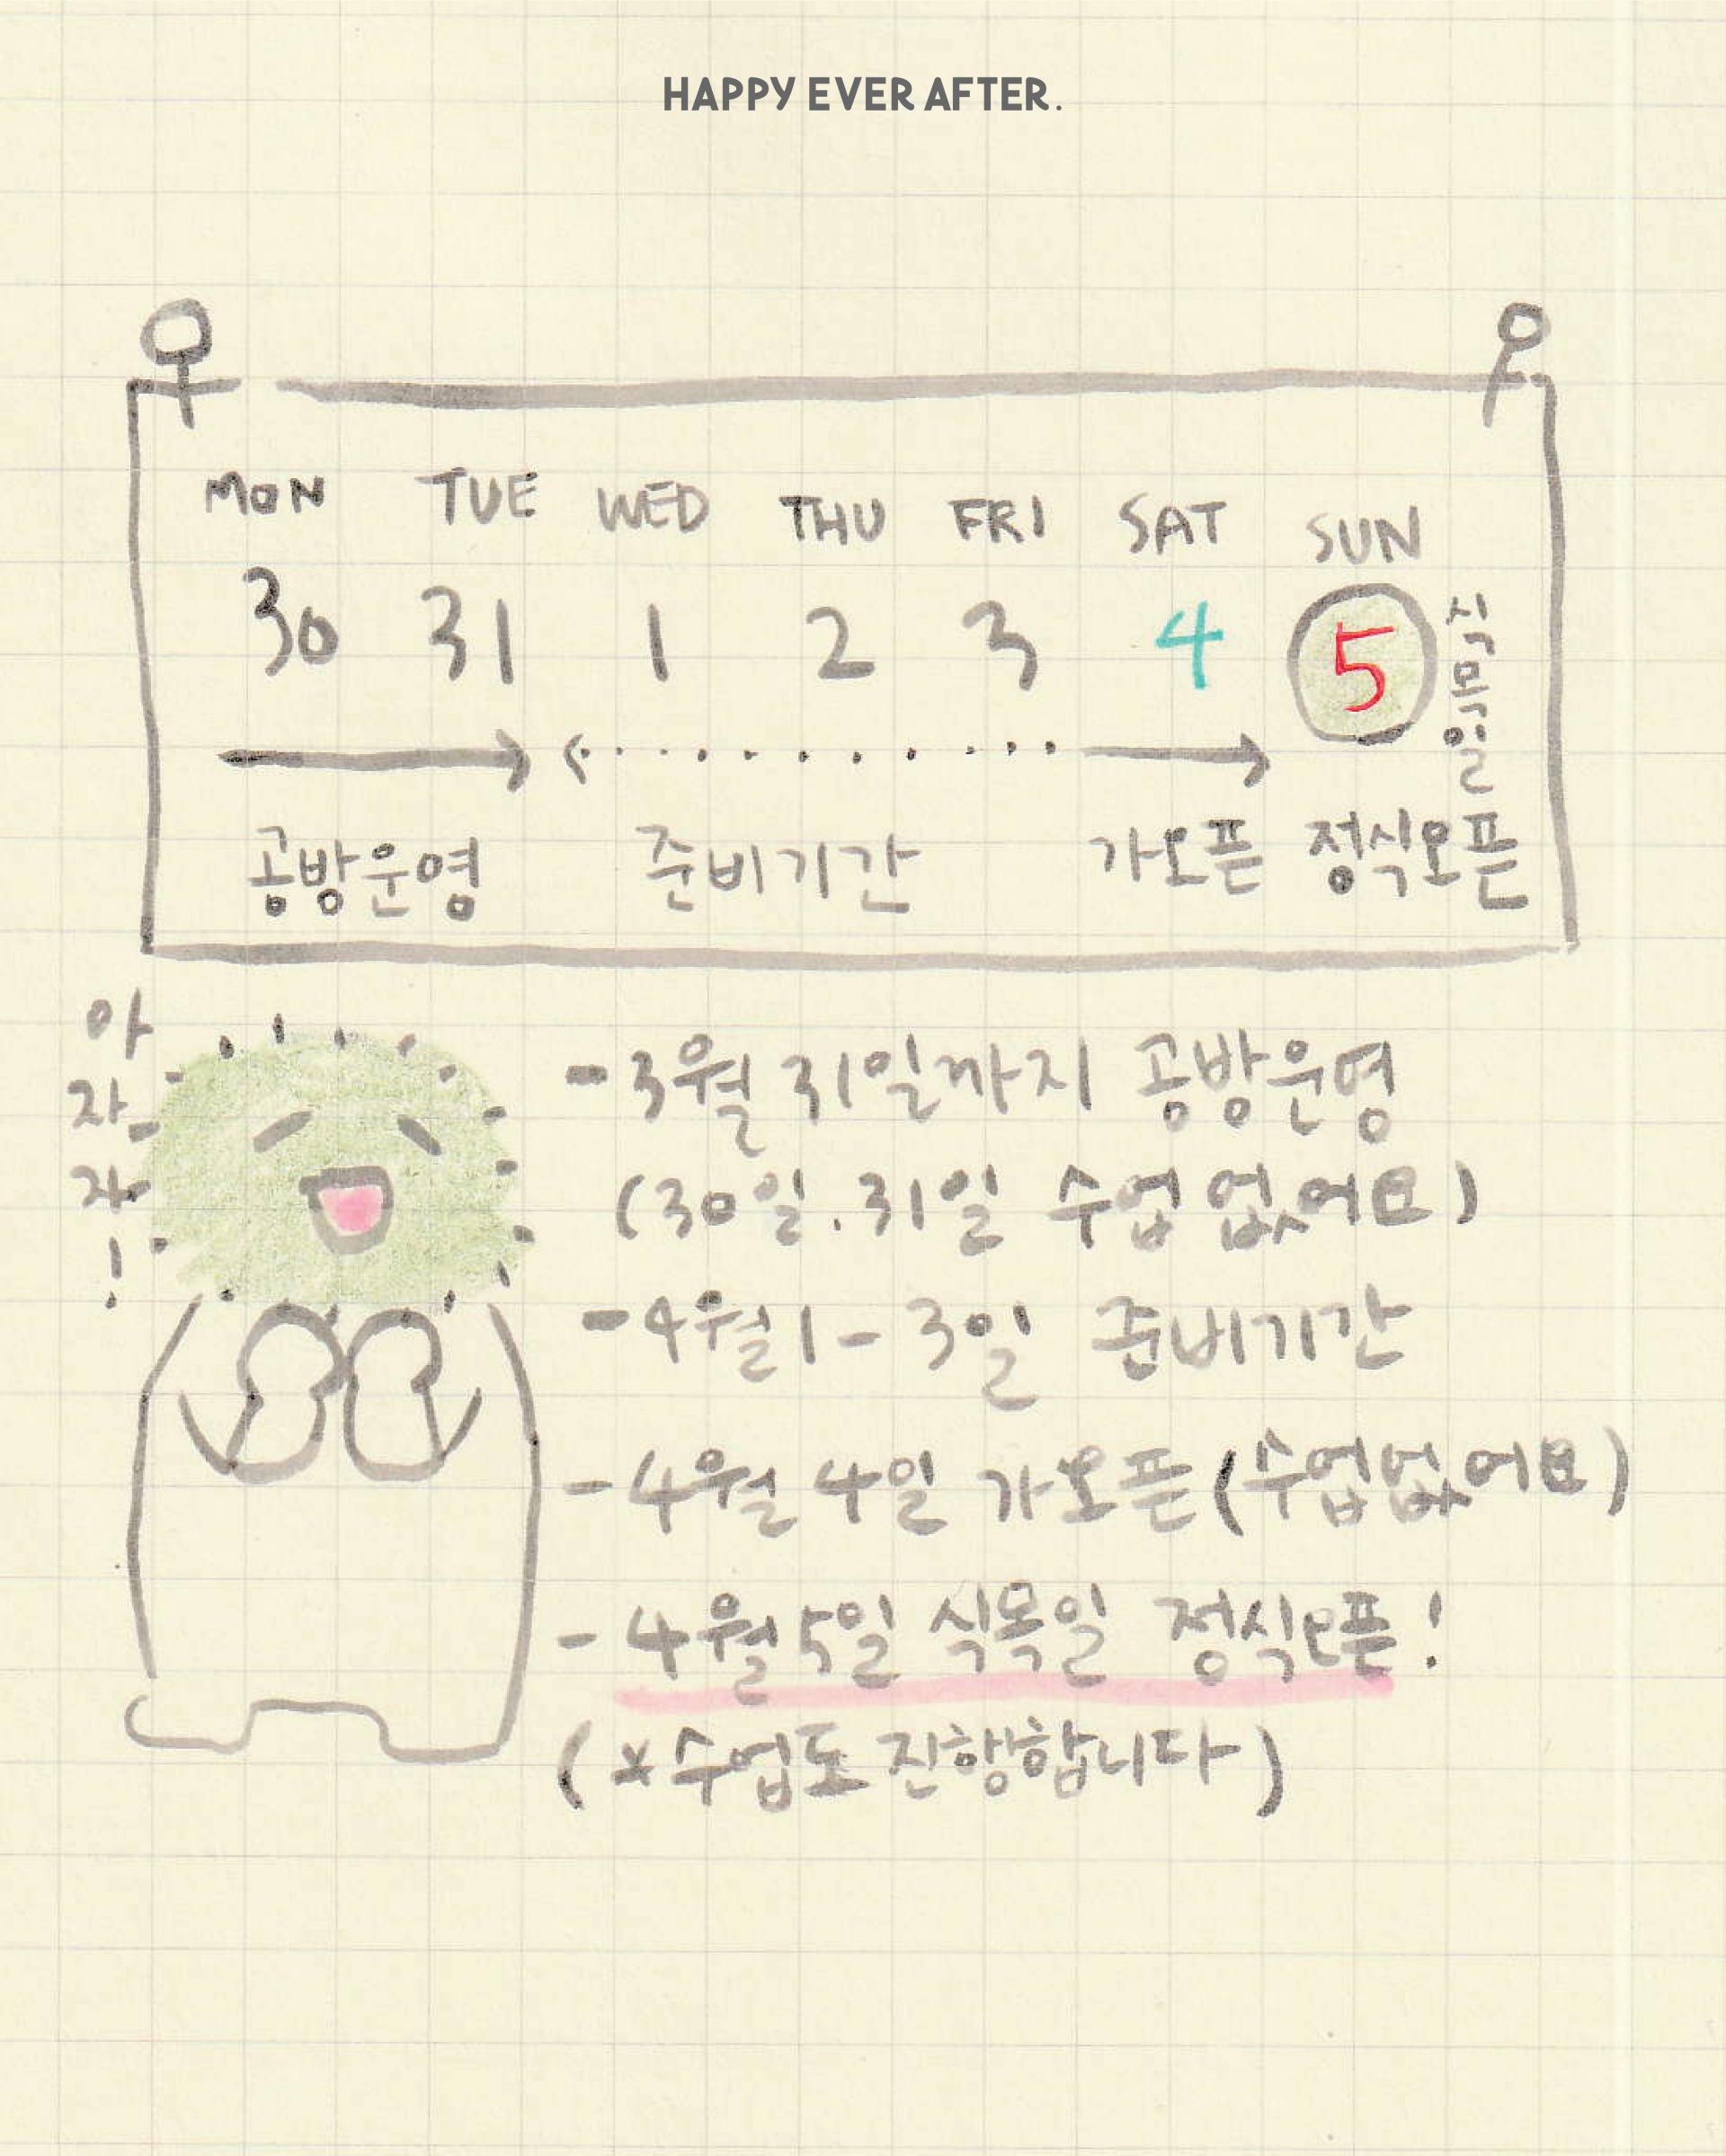 HAPPY EVER AFTER.
MON TUE WED THU FRI SAT SUN
30 31 1 2 3 4 5
식목일
공방운영 준비기간 가오픈 정식오픈
아
자
자
!
-3월 31일까지 공방운영
(30일.31일 수업 없어요)
-4월 1-3일 준비기간
-4월 4일 가오픈 (수업없어요)
-4월 5일 식목일 정식오픈!
(*수업도 진행합니다)